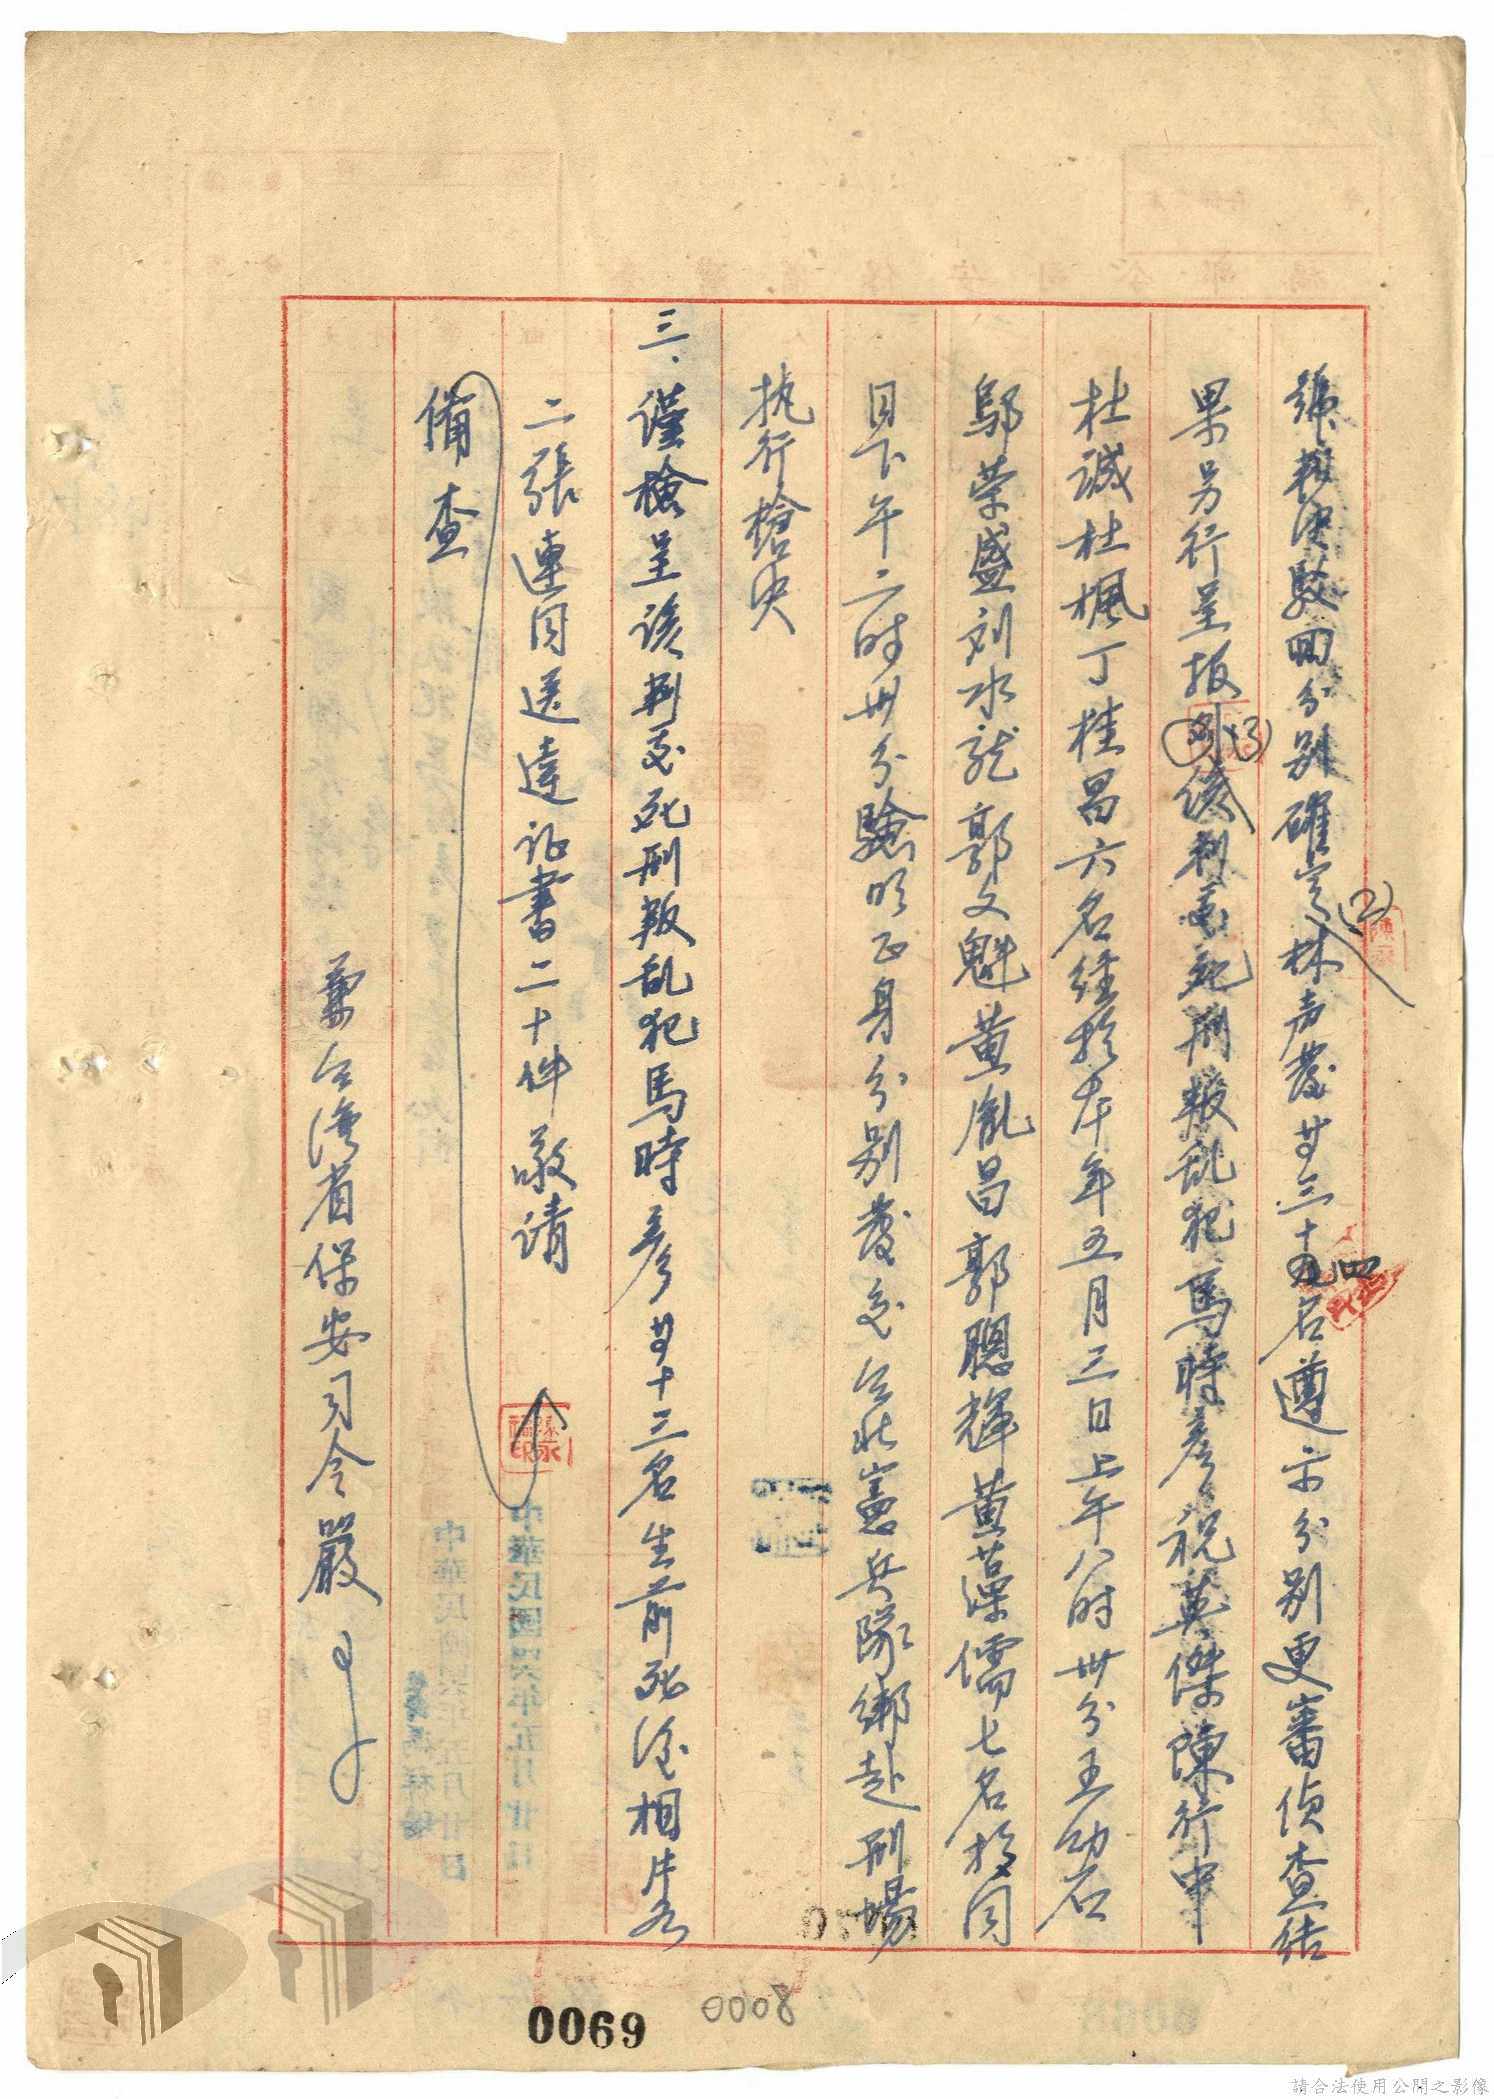 號判決駁回分別確定(2)林声發等三十四名遵示分別更審偵查結
果另行呈报(3)判處死刑叛乱犯馬時彥祝英傑陳行中
杜誠杜楓丁桂昌六名經於本年五月三日上午八时卅分王幼石
鄔荣盛刘水龙郭文魁黄胤昌郭聰輝黄藻儒七名於同
日下午二时卅分驗明正身分别發交台北憲兵隊綁赴刑場
执行槍决
三.謹檢呈該判處死刑叛乱犯馬時彥等十三名生前死後相片各
二張連同送達证書二十件敬请
備查
兼台湾省保安司令嚴
中華民國四六年五月廿日
中華民國四六年五月廿日
0069
0008
請合法使用公開之影像